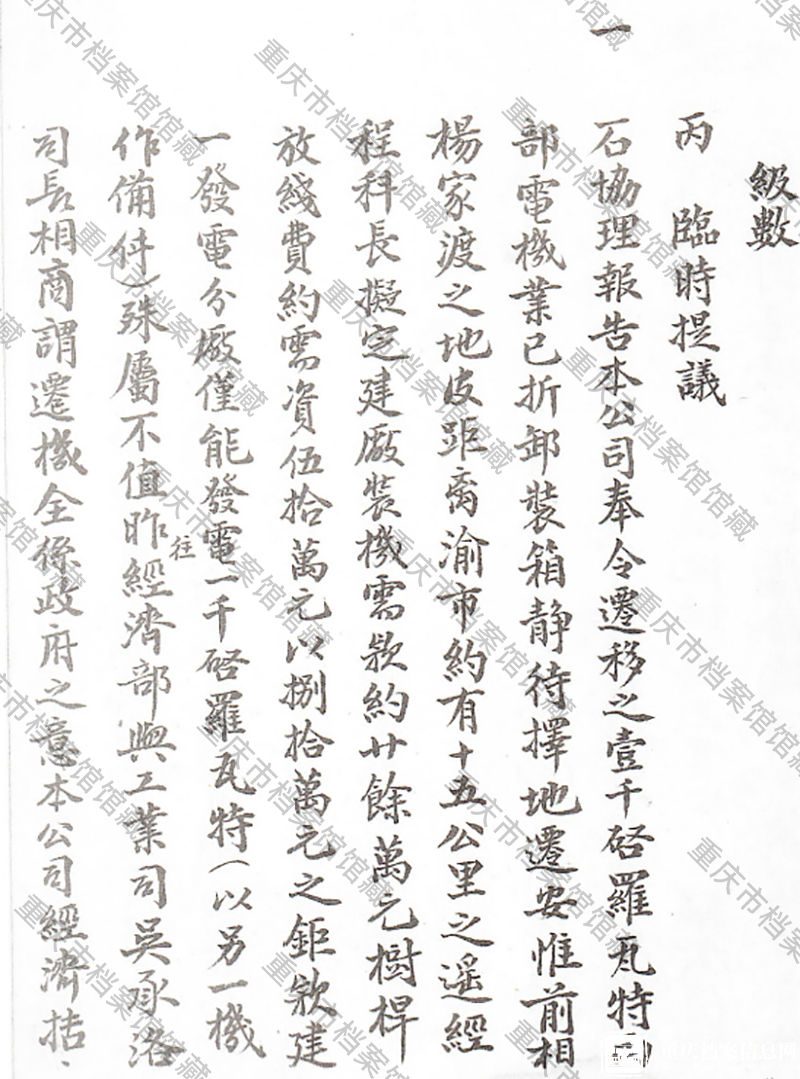 級數
丙　臨時提議
一
石協理報告本公司奉令遷移之壹千啓羅瓦特
部電機業已折卸裝箱静待擇地遷安惟前相
楊家渡之地皮距离渝市約有十五公里之遥經
程科長擬定建廠裝機需欵約廿餘萬元樹桿
放綫費約需資伍拾萬元以捌拾萬元之鉅欵建
一發電分廠僅能發電一千啓羅瓦特(以另一機
作備件)殊屬不值昨往經濟部與工業司吳承洛
司長相商謂遷機全係政府之意本公司經濟拮
重庆市档案馆馆藏